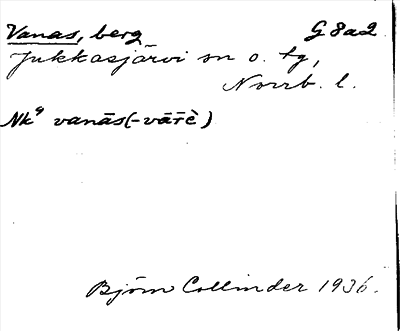 Vanas, berg G 8 a 2
Jukkasjärvi sn o. tg,
Norrb. l.
Nk⁹ vanās(-vārrè)
Björn Collinder 1936.